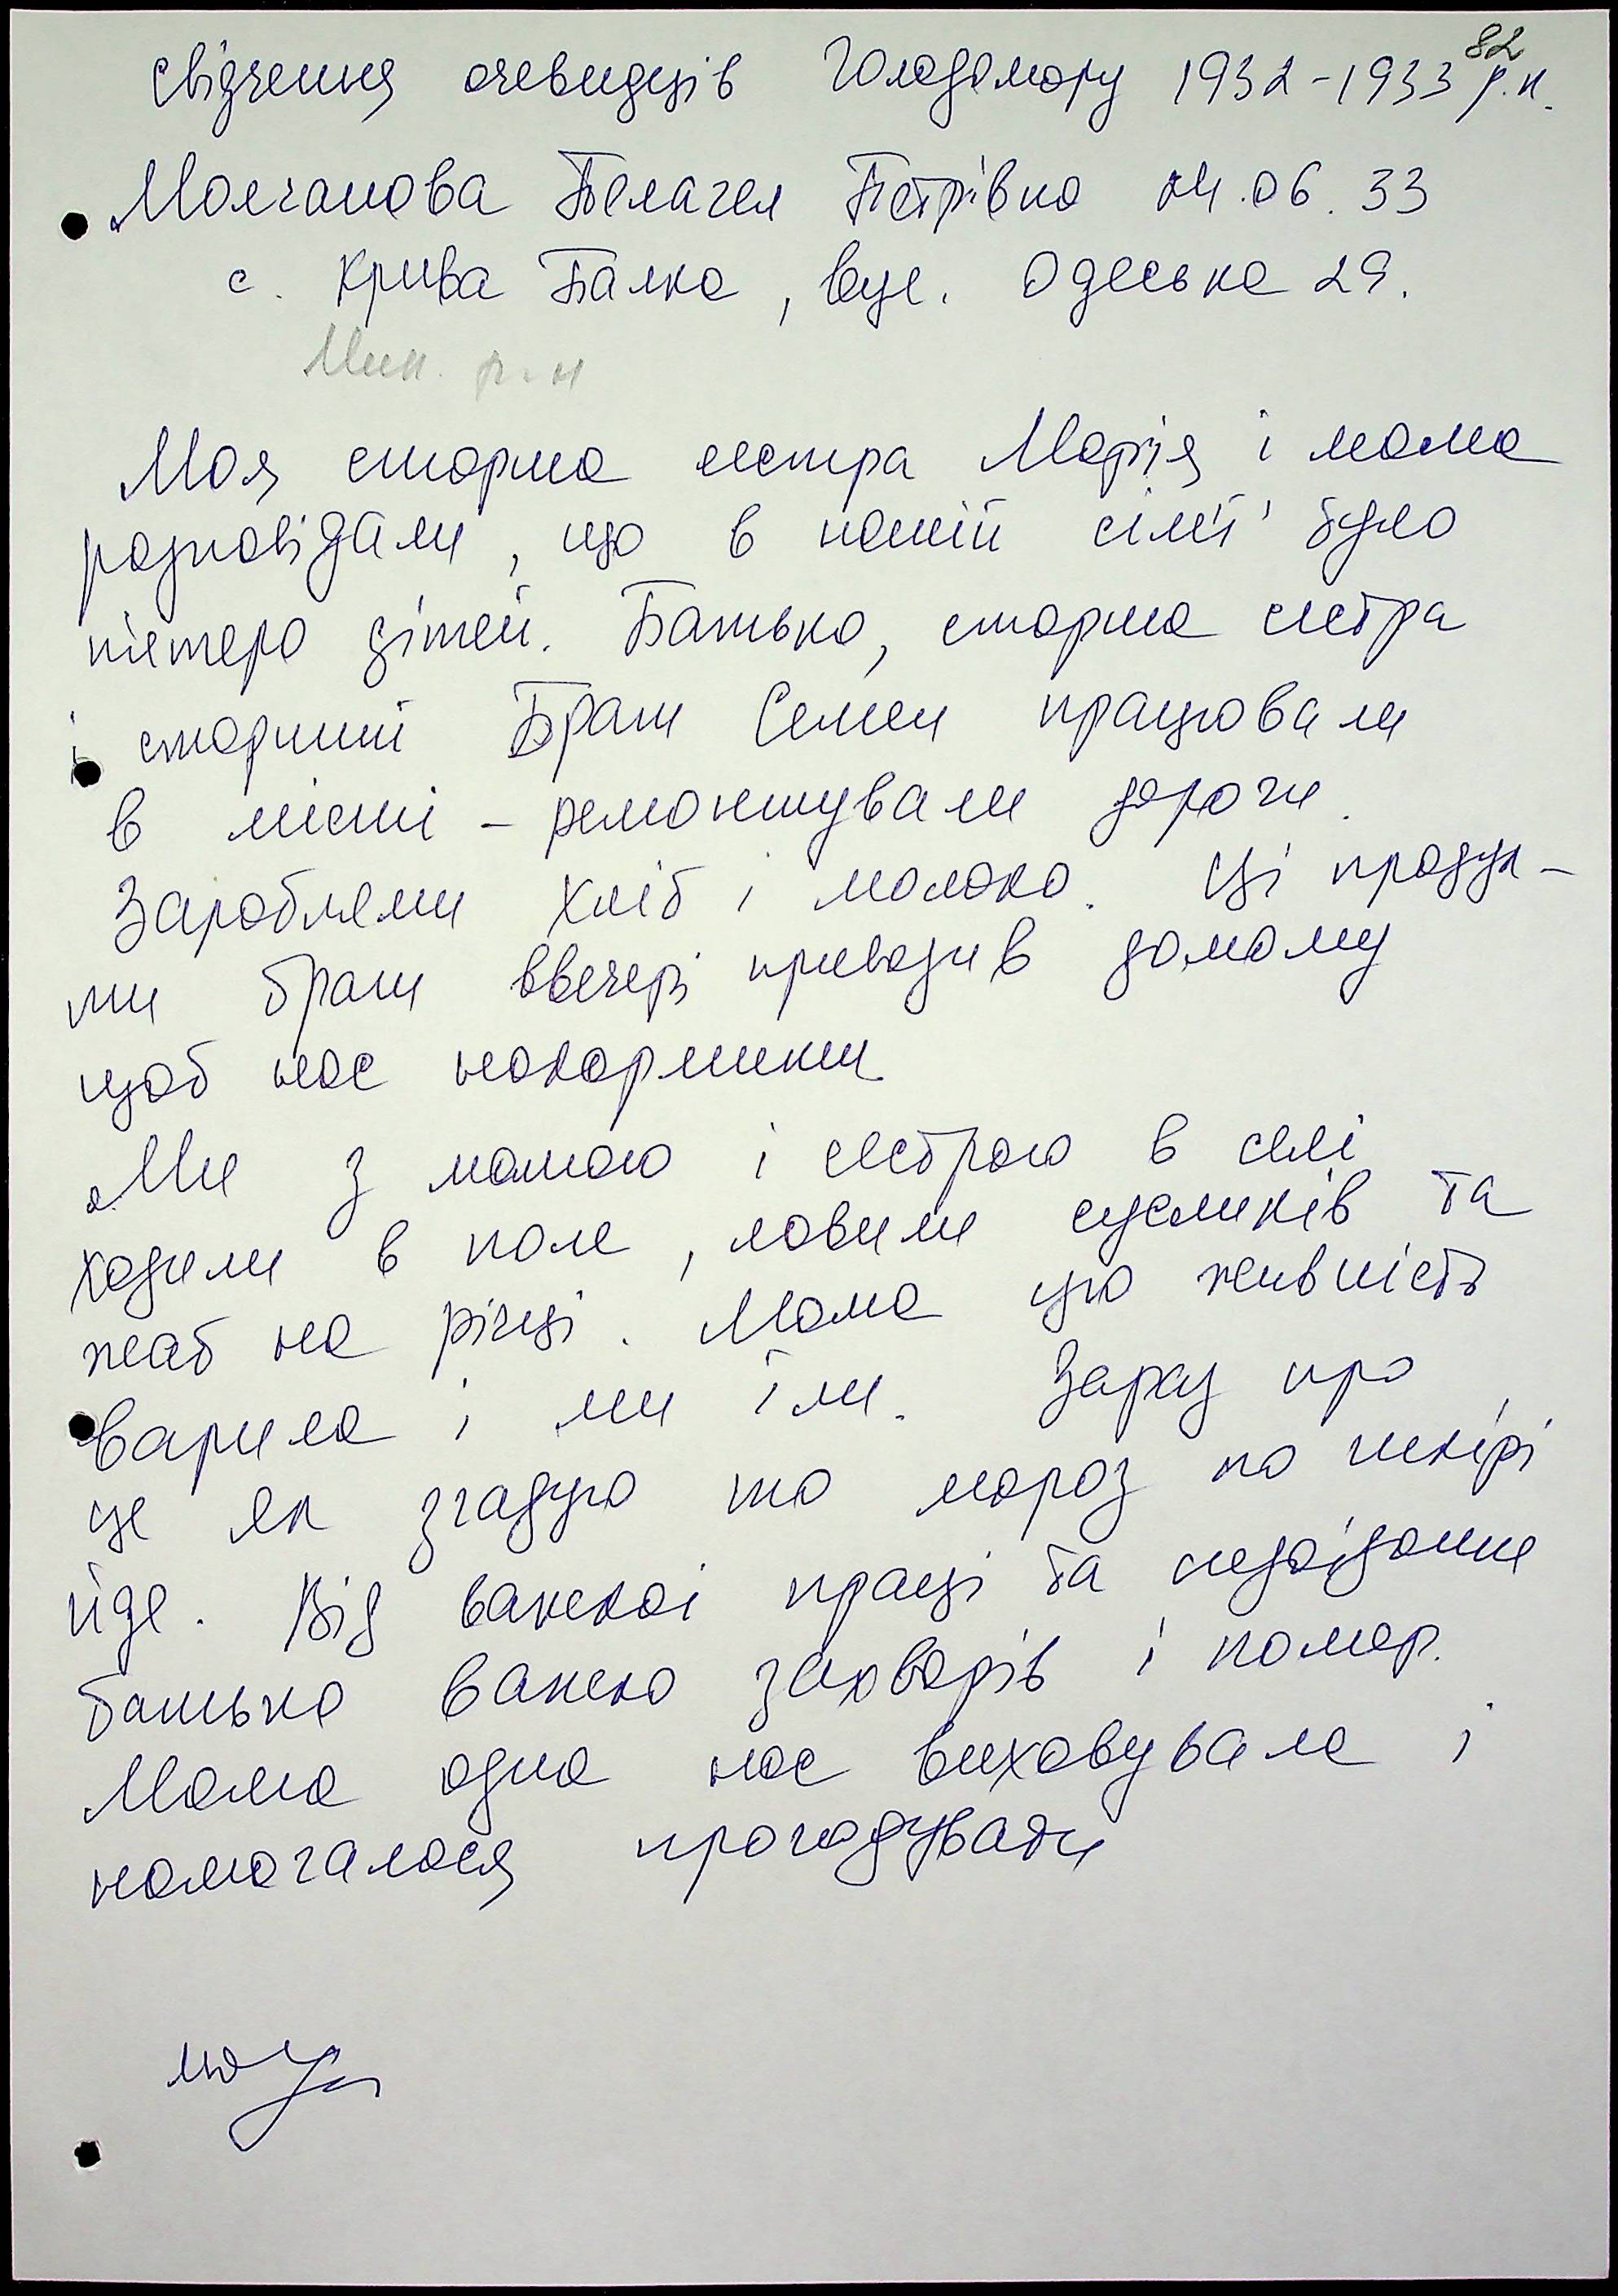 82
Свідчення очевидців Голодомору 1932-1933 р.н.
Молчанова Пелагея Петрівна 04.06.33
с. Крива Балка, вул. Одеська 29.
Мик. р-н
Моя старша сестра Марія і мама
розповідали, що в нашій сім'ї було
п'ятеро дітей. Батько, старша сестра
і старший Брат Семен працювали
в місті - ремонтували дороги.
Заробляли хліб і молоко. Ці продук-
ти брат ввечері привозив домому
щоб нас накормити.
Ми з мамою і сестрою в селі
ходили в поле, ловили сусликів та
жаб на річці. Мама цю живність
варила і ми їли. Зараз про
це як згадую то мороз по шкірі
йде. Від важкої праці та недоїдання
батько важко захворів і помер.
Мама одна нас виховувала і
намагалася прогодувати